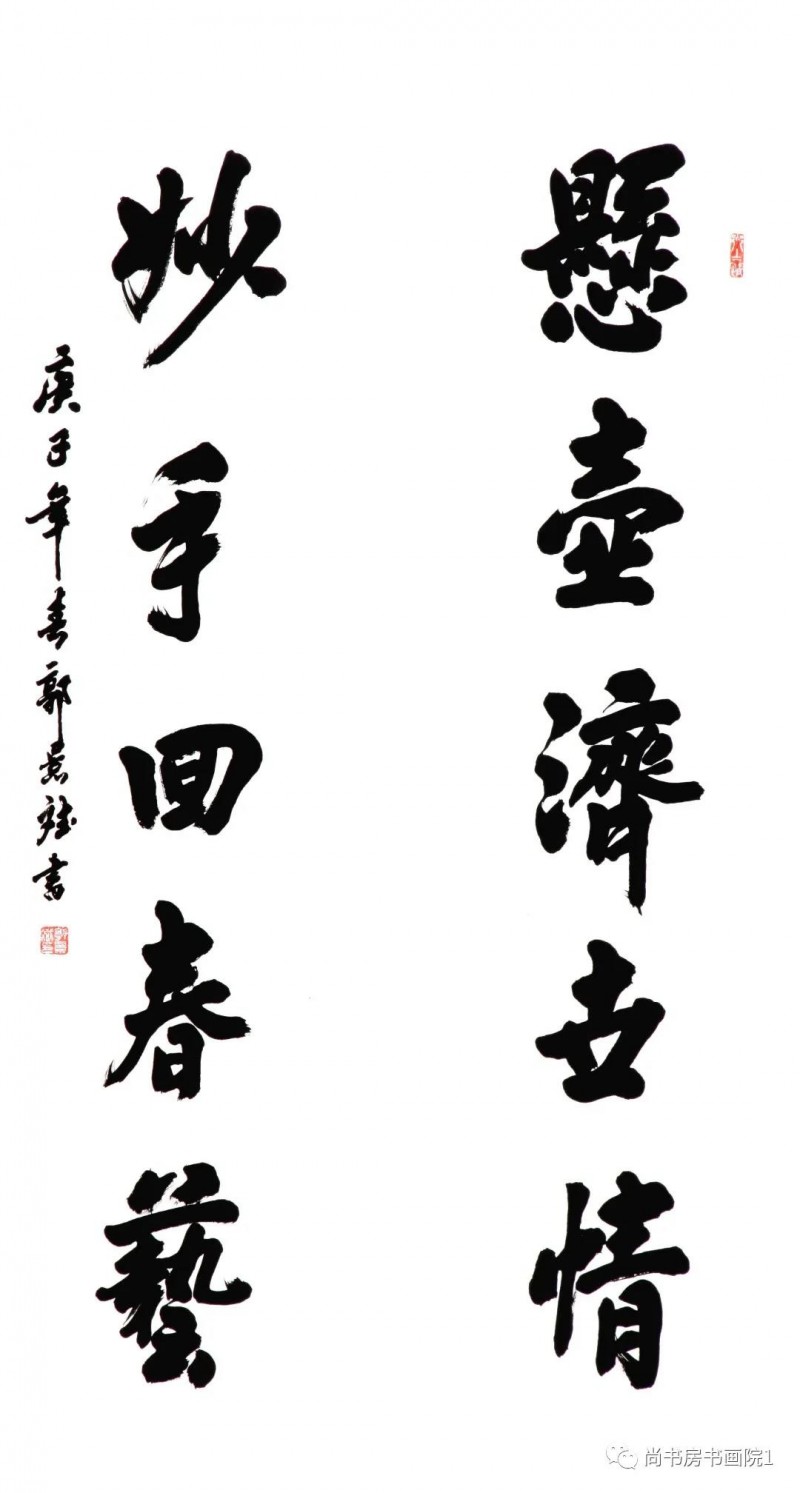 懸壺濟世情
妙手回春藝
庚子年春郭景雄書
尚书房书画院1